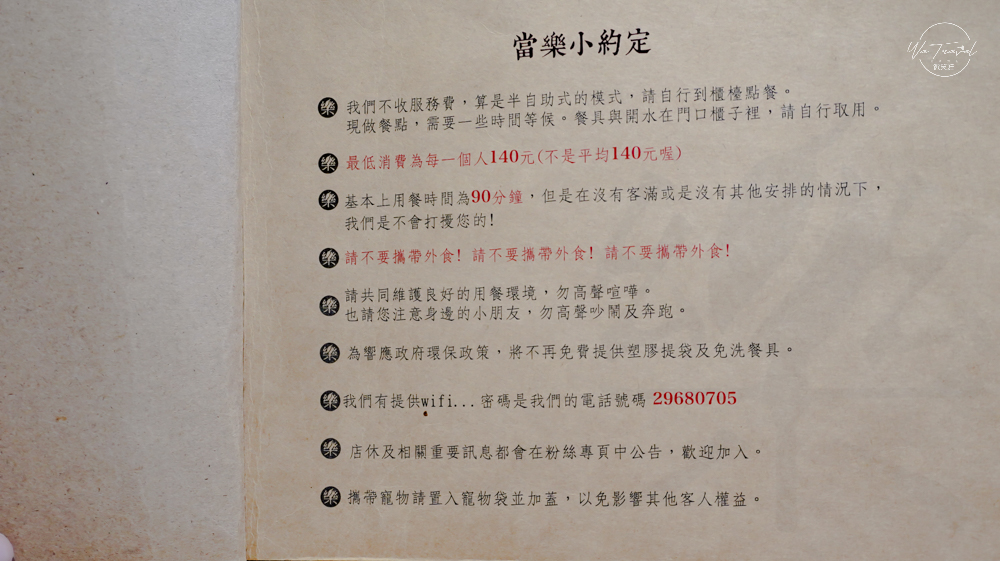 當樂小約定
Wa Travel
樂 我們不收服務費，算是半自助式的模式，請自行到櫃檯點餐。
現做餐點，需要一些時間等候。餐具與開水在門口櫃子裡，請自行取用。
樂 最低消費為每一個人140元(不是平均140元喔)
樂 基本上用餐時間為90分鐘，但是在沒有客滿或是沒有其他安排的情況下，
我們是不會打擾您的!
樂 請不要攜帶外食! 請不要攜帶外食! 請不要攜帶外食!
樂 請共同維護良好的用餐環境，勿高聲喧嘩。
也請您注意身邊的小朋友，勿高聲吵鬧及奔跑。
樂 為響應政府環保政策，將不再免費提供塑膠提袋及免洗餐具。
樂 我們有提供wifi...密碼是我們的電話號碼 29680705
樂 店休及相關重要訊息都會在粉絲專頁中公告，歡迎加入。
樂 攜帶寵物請置入寵物袋並加蓋，以免影響其他客人權益。